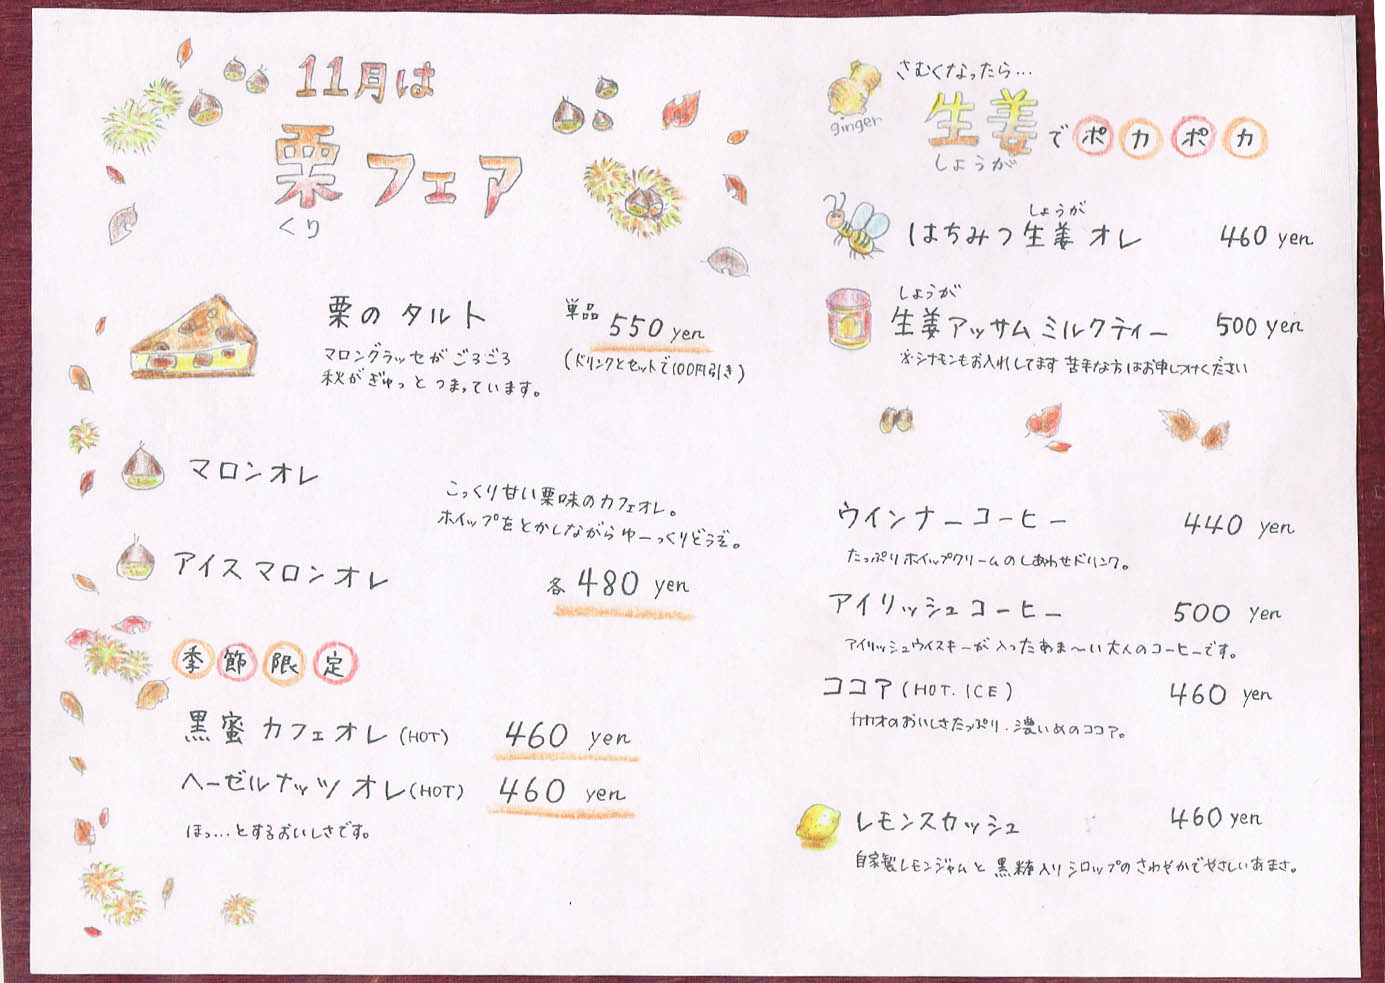 11月は
栗フェア
くり
栗のタルト
単品 550 yen
マロングラッセがごろごろ
秋がぎゅっとつまっています。
(ドリンクとセットで100円引き)
マロンオレ
こっくり甘い栗味のカフェオレ。
ホイップをとかしながらゆーっくりどうぞ。
アイスマロンオレ
各 480 yen
季節限定
黒蜜カフェオレ(HOT) 460 yen
ヘーゼルナッツオレ(HOT) 460 yen
ほっ…とするおいしさです。
さむくなったら…
ginger
生姜でポカポカ
しょうが
しょうが
はちみつ生姜オレ 460 yen
しょうが
生姜アッサムミルクティー 500 yen
※シナモンもお入れしてます 苦手な方はお申しつけください
ウインナーコーヒー 440 yen
たっぷりホイップクリームのしあわせドリンク。
アイリッシュコーヒー 500 yen
アイリッシュウイスキーが入ったあま〜い大人のコーヒーです。
ココア(HOT. ICE) 460 yen
カカオのおいしさたっぷり.濃いめのココア。
レモンスカッシュ 460 yen
自家製レモンジャムと黒糖入りシロップのさわやかでやさしいあまさ。